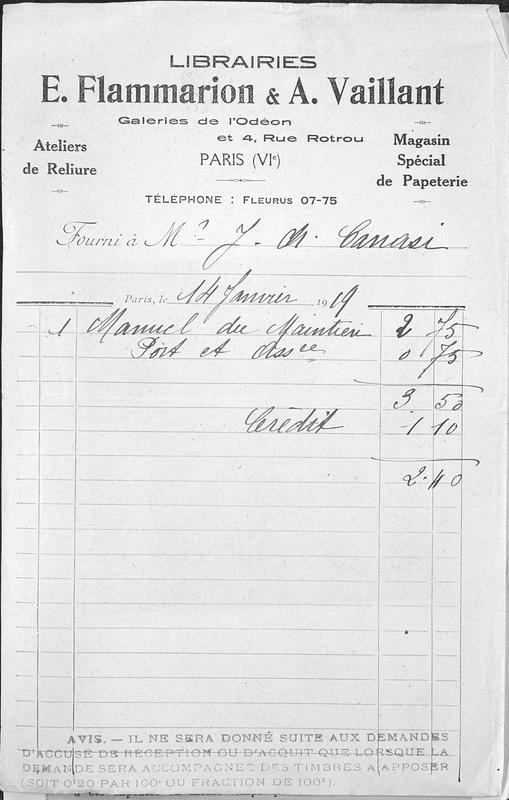 LIBRAIRIES
E. Flammarion & A. Vaillant
Galeries de l'Odéon
et 4, Rue Rotrou
PARIS (VIe)
Ateliers
de Reliure
Magasin
Spécial
de Papeterie
TÉLÉPHONE : FLEURUS 07-75
Fourni à Mr J. M. Canasi
Paris, le 14 Janvier 1919
1 Manuel du Maintien 2 75
Port et Assce 0 75
3. 50
Crédit 1 10
2.40
AVIS. — IL NE SERA DONNÉ SUITE AUX DEMANDES
D'ACCUSÉ DE RÉCEPTION OU D'ACQUIT QUE LORSQUE LA
DEMANDE SERA ACCOMPAGNÉE DES TIMBRES A APPOSER
(SOIT 0f20 PAR 100f OU FRACTION DE 100f).